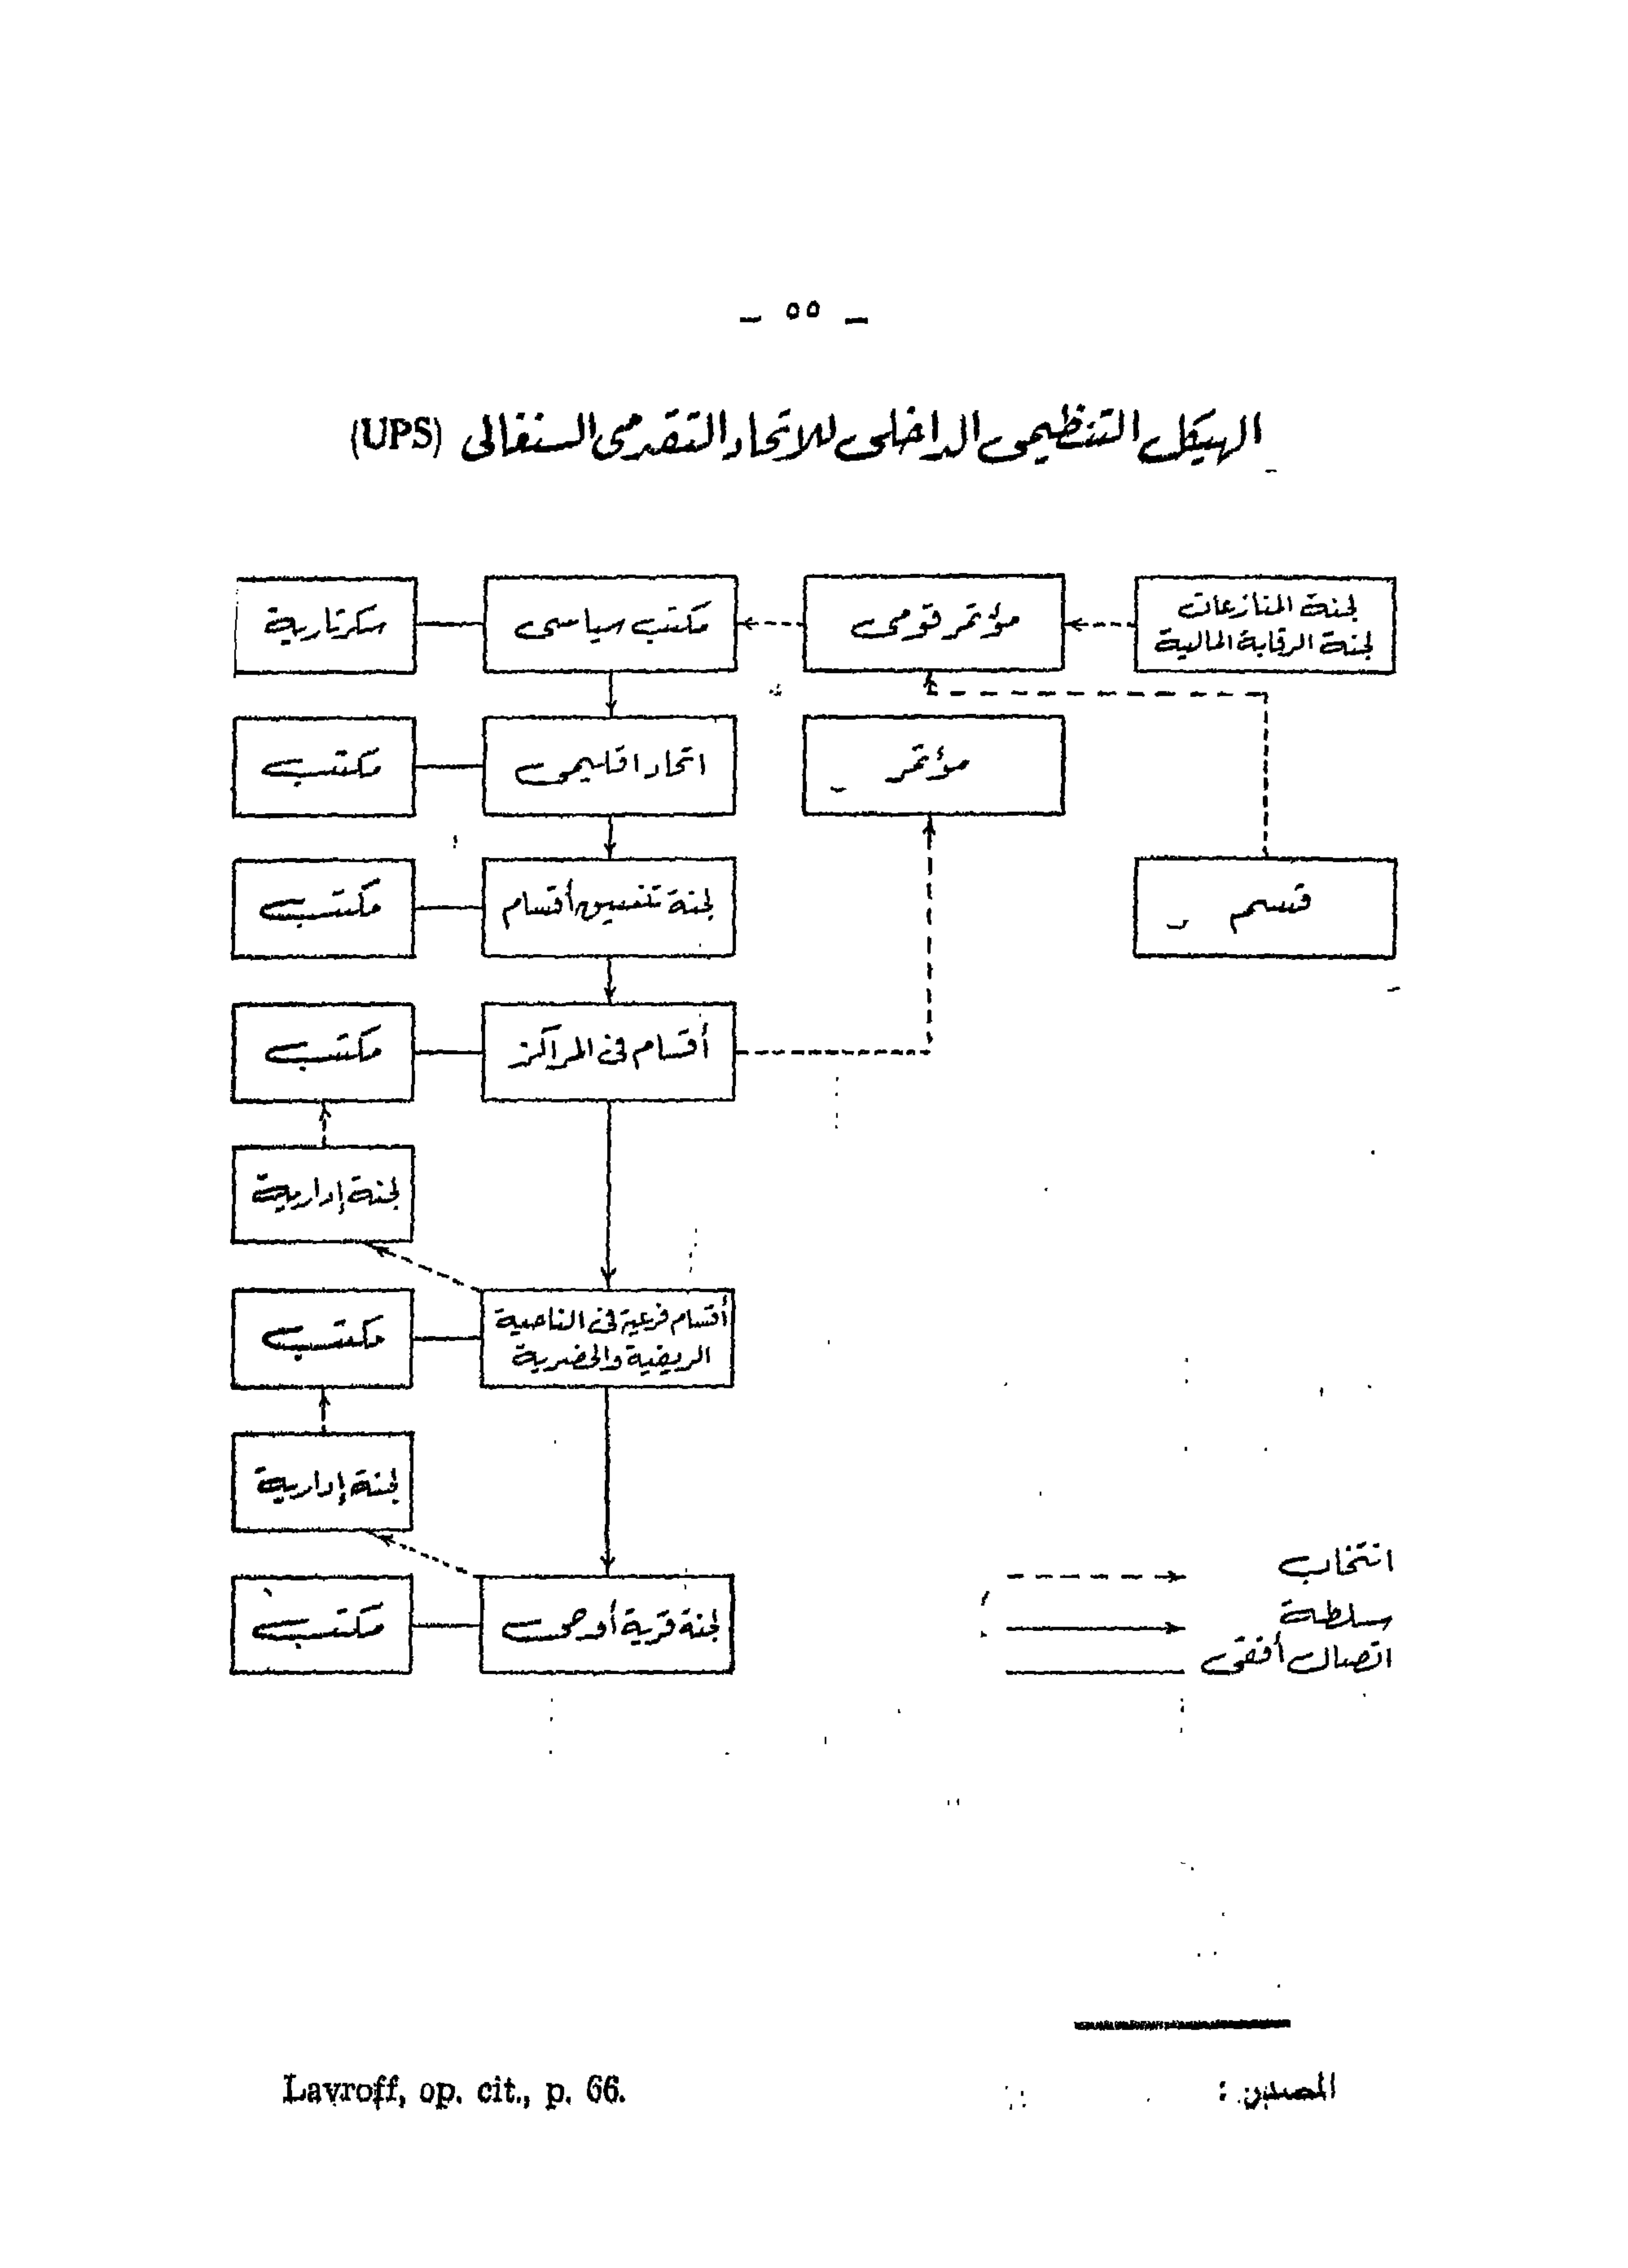 – ٥٥ –
الهيكل التنظيمى الداخلى للاتحاد التقدمى السنغالى (UPS)
لجنة المنازعات
لجنة الرقابة المالية
مؤتمر قومى
مكتب سياسى
سكرتارية
مؤتمر
اتحاد اقليمى
مكتب
قسم
لجنة تنسيق أقسام
مكتب
أقسام فى المراكز
مكتب
لجنة إدارية
أقسام فرعية فى الناحية
الريفية والحضرية
مكتب
لجنة إدارية
لجنة قرية أو حى
مكتب
انتخاب
سلطة
اتصال أفقى
المصدر :
Lavroff, op. cit., p. 66.